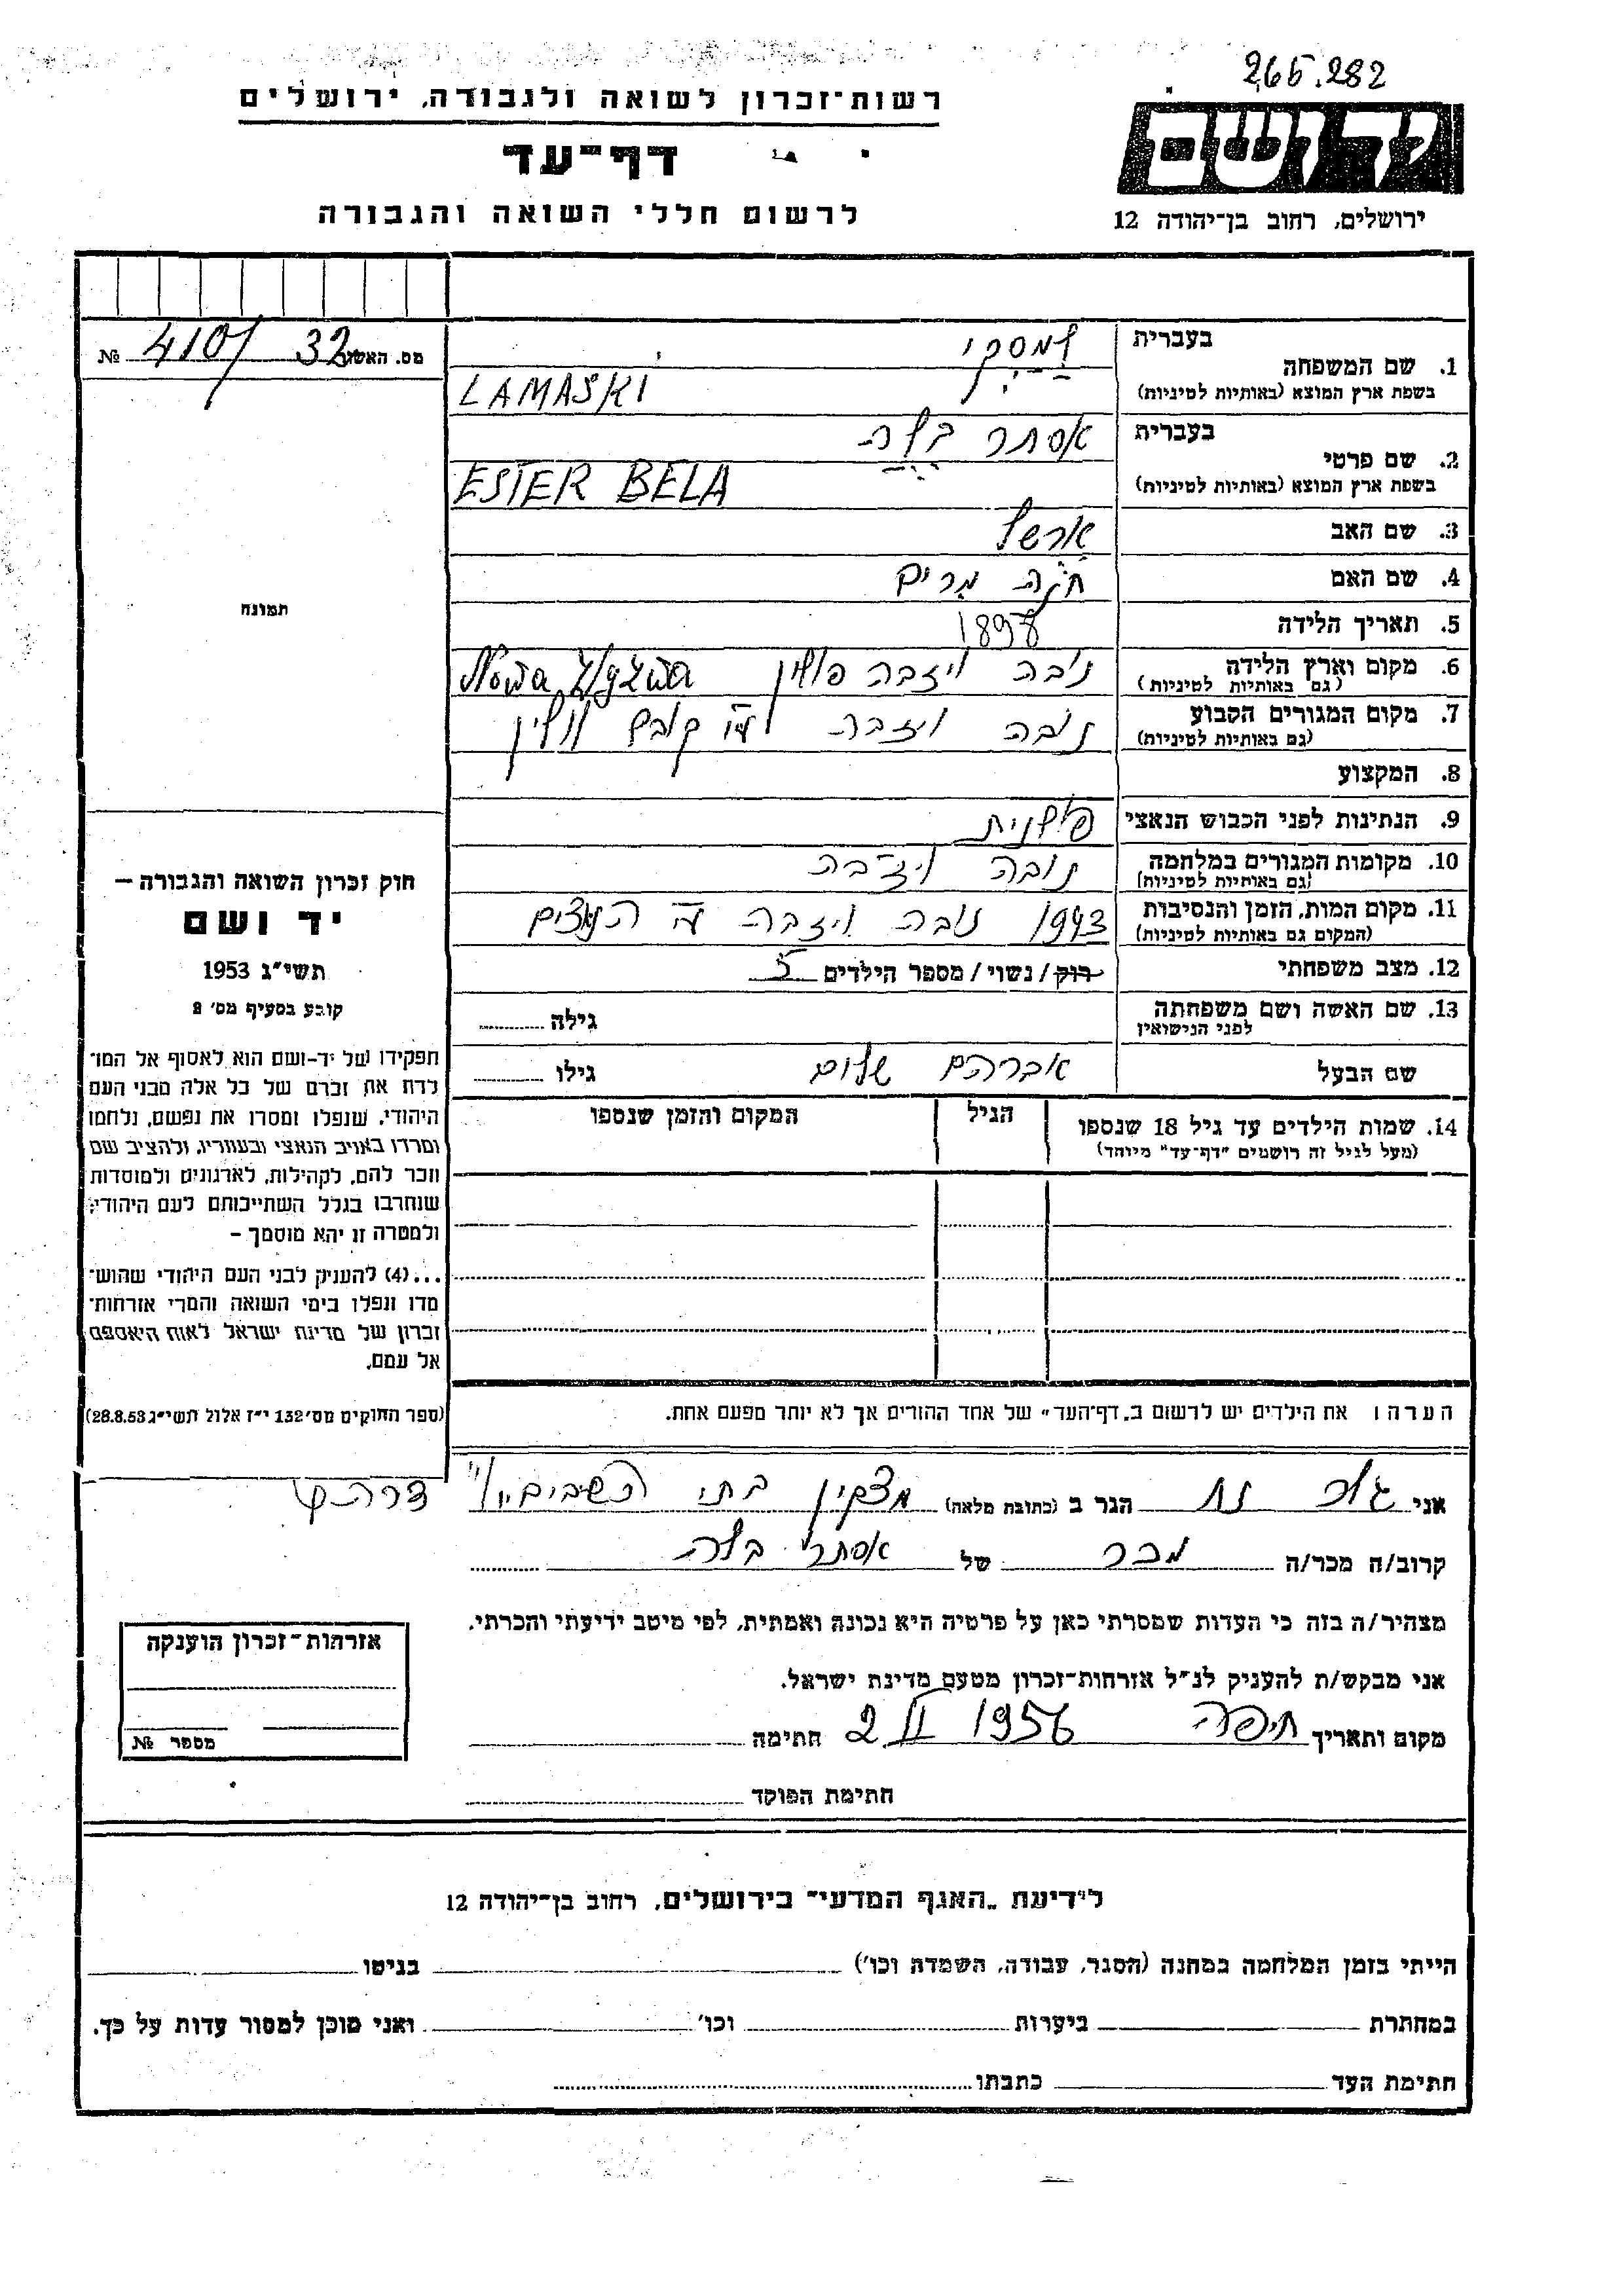 265.282
רשות־זכרון לשואה ולגבורה, ירושלים
דף־עד
לרשום חללי השואה והגבורה
יד ושם
ירושלים, רחוב בן־יהודה 12
מס. האשור 32 410/ №
1. שם המשפחה
בעברית למסקי
בשפת ארץ המוצא (באותיות לטיניות) LAMASKI
2. שם פרטי
בעברית אסתר בלה
בשפת ארץ המוצא (באותיות לטיניות) ESTER BELA
3. שם האב ארשל
4. שם האם חנה מרים
5. תאריך הלידה
6. מקום וארץ הלידה נובה ויזבה פולין Nowa
(גם באותיות לטיניות)
7. מקום המגורים הקבוע נובה ויזבה
(גם באותיות לטיניות)
8. המקצוע
9. הנתינות לפני הכבוש הנאצי פולנית
10. מקומות המגורים במלחמה נובה ויזבה
(גם באותיות לטיניות)
11. מקום המות, הזמן והנסיבות 1943 נובה ויזבה ע"י הנאצים
(המקום גם באותיות לטיניות)
12. מצב משפחתי רוק / נשוי / מספר הילדים 5
13. שם האשה ושם משפחתה גילה
לפני הנישואין
שם הבעל אברהם שלום גילו
14. שמות הילדים עד גיל 18 שנספו הגיל המקום והזמן שנספו
(מעל לגיל זה רושמים "דף־עד" מיוחד)
הערה: את הילדים יש לרשום ב„דף־העד" של אחד ההורים אך לא יותר מפעם אחת.
תמונה
חוק זכרון השואה והגבורה –
יד ושם
תשי"ג 1953
קובע בסעיף מס' 2
תפקידו של יד-ושם הוא לאסוף אל המו־
לדת את זכרם של כל אלה מבני העם
היהודי, שנפלו ומסרו את נפשם, נלחמו
ומרדו באויב הנאצי ובעוזריו, ולהציב שם
וזכר להם, לקהילות, לארגונים ולמוסדות
שנחרבו בגלל השתייכותם לעם היהודי;
ולמטרה זו יהא מוסמך –
...(4) להעניק לבני העם היהודי שהוש־
מדו ונפלו בימי השואה והמרי אזרחות־
זכרון של מדינת ישראל לאות היאספם
אל עמם.
(ספר החוקים מס' 132 י"ז אלול תשי"ג 28.8.53)
אני הגר ב (כתובת מלאה) בתי
קרוב/ה מכר/ה מכר של אסתר בלה
מצהיר/ה בזה כי העדות שמסרתי כאן על פרטיה היא נכונה ואמתית, לפי מיטב ידיעתי והכרתי.
אני מבקש/ת להעניק לנ"ל אזרחות־זכרון מטעם מדינת ישראל.
מקום ותאריך חיפה 2 II 1956 חתימה
חתימת הפוקד
אזרחות־זכרון הוענקה
מספר №
לידיעת „האגף המדעי" בירושלים, רחוב בן־יהודה 12
הייתי בזמן המלחמה במחנה (הסגר, עבודה, השמדה וכו') בגיטו
במחתרת ביערות וכו' ואני מוכן למסור עדות על כך.
חתימת העד כתבתו